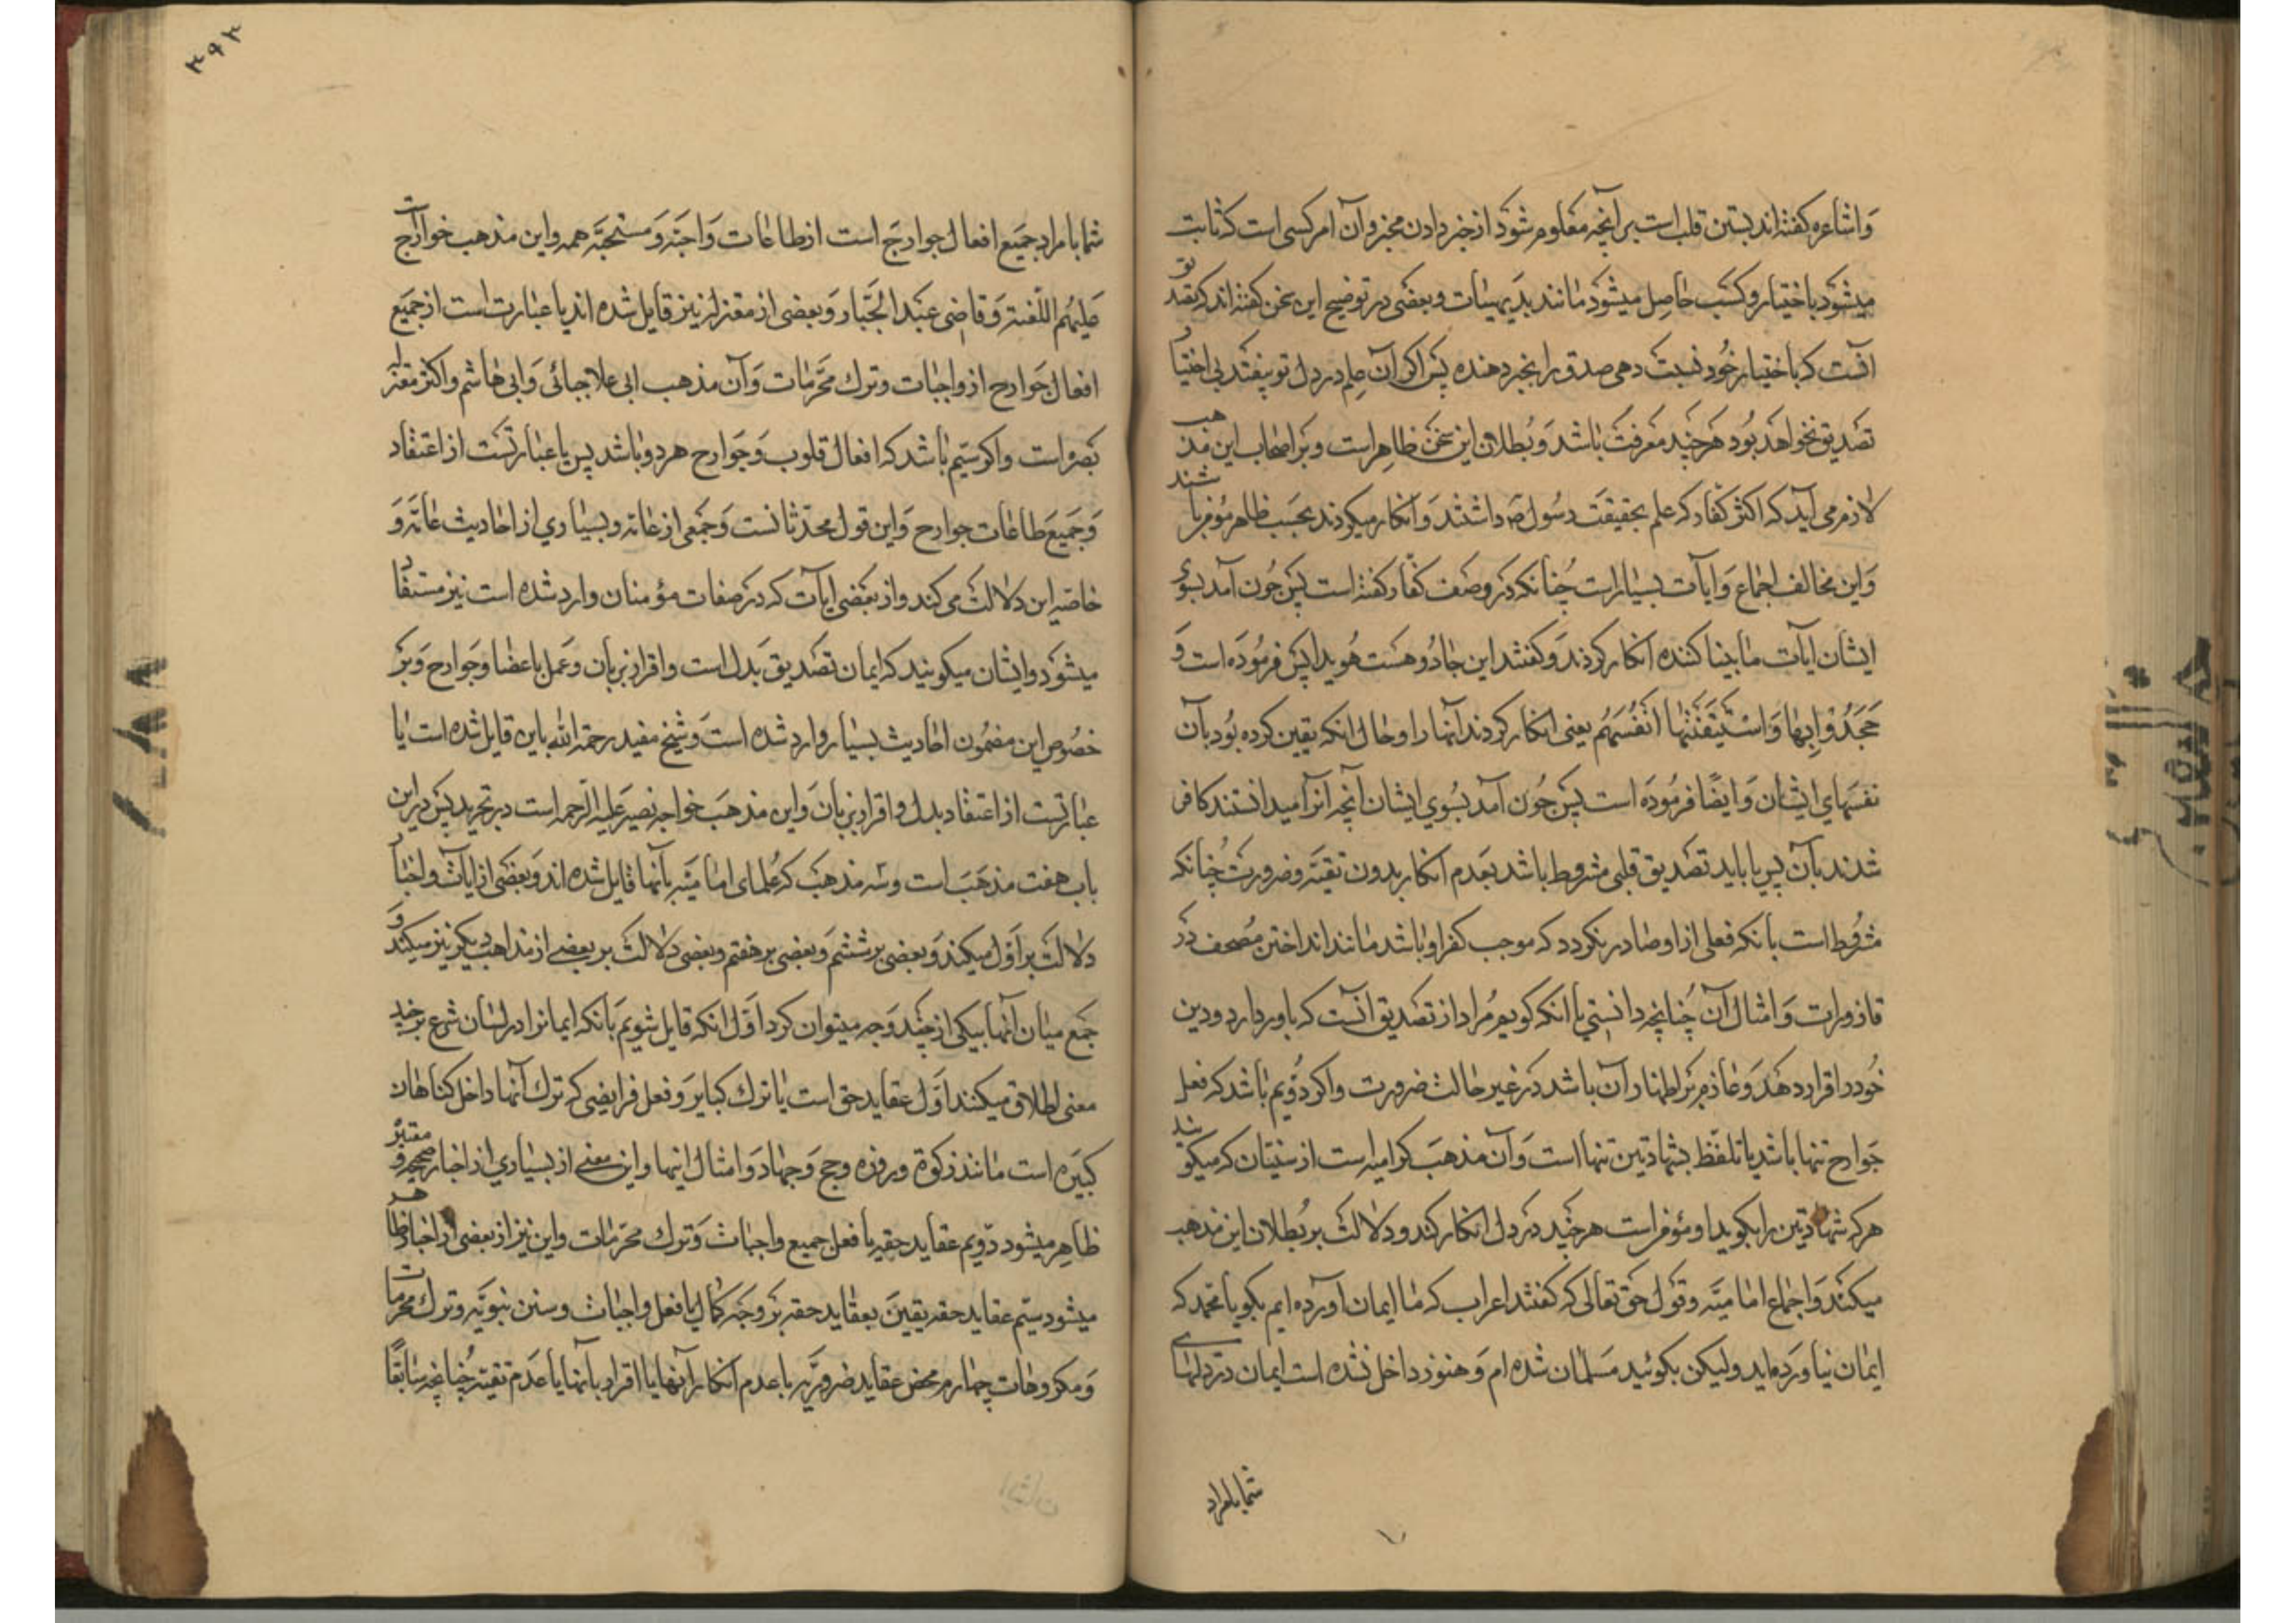 واشاعره کفته‌اند بستن قلب است بر آنچه معلوم شود از خبر دادن مخبر و آن امر کسبی است که ثابت
میشود باختیار و کسب حاصل میشود مانند بدیهیات و بعضی در توضیح این سخن کفته‌اند که تصدیق
آنست که باختیار خود نسبت دهی صدق را بخبر دهنده پس اکر آن علم در دل تو بیفتد بی اختیار
تصدیق نخواهد بود هر چند معرفت باشد و بطلان این سخن ظاهر است و بر اصحاب این مذهب
لازم می آید که اکثر کفار که علم بحقیقت رسول ص داشتند و انکار میکردند بحسب ظاهر مؤمن باشند
واین مخالف اجماع و ایات بسیار است چنانکه در وصف کفار کفته است پس چون آمد بسوی
ایشان ایات ما بینا کننده انکار کردند و کفتند این جادو هست هویدا پس فرموده است و
جَحَدُوا بِها وَاسْتَیْقَنَتْها اَنْفُسُهُم یعنی انکار کردند آنها را و حال انکه یقین کرده بود بآن
نفسهای ایشان وایضًا فرموده است پس چون آمد بسوی ایشان آنچه آنرا میدانستند کافر
شدند بآن پس یا باید تصدیق قلبی مشروط باشد بعدم انکار بدون تقیّه و ضرورت چنانکه
مشروط است بآنکه فعلی از او صادر نکردد که موجب کفر او باشد مانند انداختن مصحف در
قاذورات و امثال آن چنانچه دانستی یا انکه کویم مراد از تصدیق آنست که باور دارد و دین
خود و اقرار دهد و عازم بر اظهار آن باشد در غیر حالت ضرورت و اکر دویم باشد که فعل
جوارح تنها باشد یا تلفّظ بشهادتین تنها است و آن مذهب کرامیه است از سنیان که میکویند
هر که شهادتین را بکوید او مؤمن است هر چند در دل انکار کند و دلالت بر بطلان این مذهب
میکند و اجماع امامیّه و قول حق تعالی که کفتند اعراب که ما ایمان آورده ایم بکو یا محمد که
ایمان نیاورده‌اید ولیکن بکوئید مسلمان شده ام و هنوز داخل نشده است ایمان در دلهای
شما یا مراد
۳۹۳
شما یا مراد جمیع افعال جوارح است از طاعات واجبه و مستحبّه همه واین مذهب خوارج است
علیهم اللّعنة و قاضی عبد الجبّار و بعضی از معتزله نیز قایل شده اند یا عبارت است از جمیع
افعال جوارح از واجبات و ترک محرّمات وآن مذهب ابی علا جبائی و ابی هاشم و اکثر معتزله
بصره است و اکر سیّم باشد که افعال قلوب و جوارح هر دو باشد پس یا عبارتست از اعتقاد
و جمیع طاعات جوارح و این قول محدّثانست و جمعی از عامه و بسیاری از احادیث عامّه و
خاصه این دلالت می کند و از بعضی ایات که در صفات مؤمنان وارد شده است نیز مستفاد
میشود وایشان میکویند که ایمان تصدیق بدل است و اقرار بزبان و عمل باعضا و جوارح و بر
خصوص این مضمون احادیث بسیار وارد شده است و شیخ مفید رحمه الله باین قایل شده است یا
عبارتست از اعتقاد بدل و اقرار بزبان و این مذهب خواجه نصیر علیه الرحمه است در تجرید پس در این
باب هفت مذهب است و سه مذهب که علمای امامیّه بآنها قایل شده اند و بعضی از ایات و اخبار
دلالت بر اوّل میکند و بعضی بر ششم و بعضی بر هفتم و بعضی دلالت بر بعضی از مذاهب دیکر نیز میکند و
جمع میان آنها بیکی از چند وجه میتوان کرد اول انکه قایل شویم بآنکه ایمانرا در لسان شرع بر چند
معنی اطلاق میکنند اوّل عقاید حق است یا ترک کبایر و فعل فرایضی که ترک آنها داخل کناهان
کبیره است مانند زکوة و روزه و حج و جهاد و امثال اینها و این معنی از بسیاری از اخبار صحیحه و معتبر
ظاهر میشود دویم عقاید حقه با فعل جمیع واجبات و ترک محرّمات و این نیز از بعضی از اخبار ظاهر
میشود سیّم عقاید حقه یقین بعقاید حقه بر وجه کمال با فعل واجبات و سنن نبویّه و ترک محرمات
و مکروهات چهارم محض عقاید ضروریّه با عدم انکار آنها یا اقرار بآنها یا عدم تقیّه چنانچه سابقًا